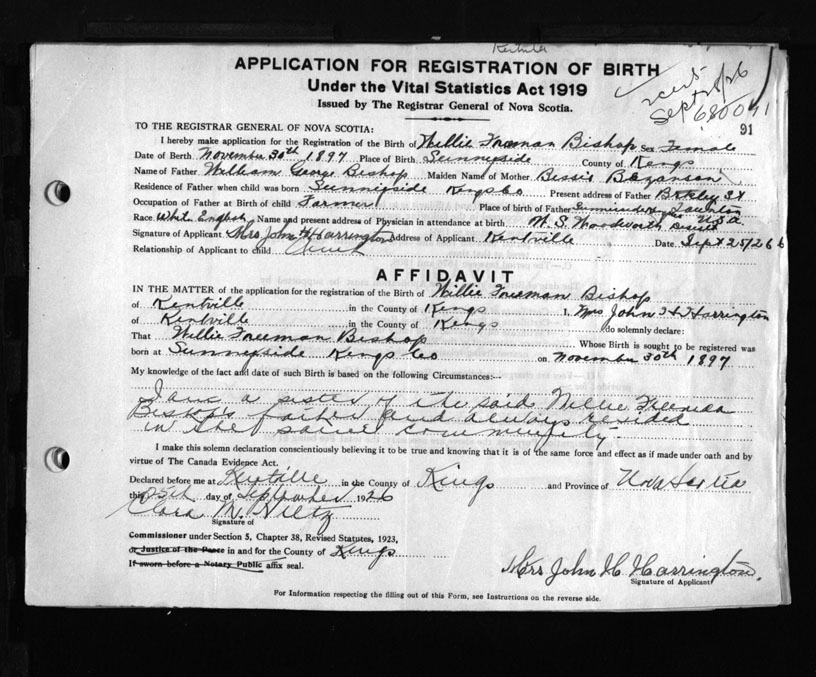 Kentville
APPLICATION FOR REGISTRATION OF BIRTH
Under the Vital Statistics Act 1919
Issued by The Registrar General of Nova Scotia.
Sept 28/26
680091
91
TO THE REGISTRAR GENERAL OF NOVA SCOTIA:
I hereby make application for the Registration of the Birth of Willie Freeman Bishop Sex Female
Date of Berth November 30th 1897 Place of Birth Sunnyside County of Kings
Name of Father William George Bishop Maiden Name of Mother Bessie Bezanson
Residence of Father when child was born Sunnyside Kings Co Present address of Father St
Occupation of Father at Birth of child Farmer Place of birth of Father Taunton USA
Race White English Name and present address of Physician in attendance at birth M. S. Woodworth
Signature of Applicant Mrs John H Harrington Address of Applicant Kentville Date Sept 25/26
Relationship of Applicant to child Aunt
AFFIDAVIT
IN THE MATTER of the application for the registration of the Birth of Willie Freeman Bishop
of Kentville in the County of Kings I, Mrs John H Harrington
of Kentville in the County of Kings do solemnly declare:
That Willie Freeman Bishop Whose Birth is sought to be registered was
born at Sunnyside Kings Co on November 30th 1897
My knowledge of the fact and date of such Birth is based on the following Circumstances:—
I am a sister of the said Willie Freeman
Bishop's father and always resided
in the same community.
I make this solemn declaration conscientiously believing it to be true and knowing that it is of the same force and effect as if made under oath and by
virtue of The Canada Evidence Act.
Declared before me at Kentville in the County of Kings and Province of Nova Scotia
this 25th day of September 1926
Clara M.
Signature of
Commissioner under Section 5, Chapter 38, Revised Statutes, 1923,
or Justice of the Peace in and for the County of Kings
If sworn before a Notary Public affix seal.
Mrs John H Harrington.
Signature of Applicant
For Information respecting the filling out of this Form, see Instructions on the reverse side.